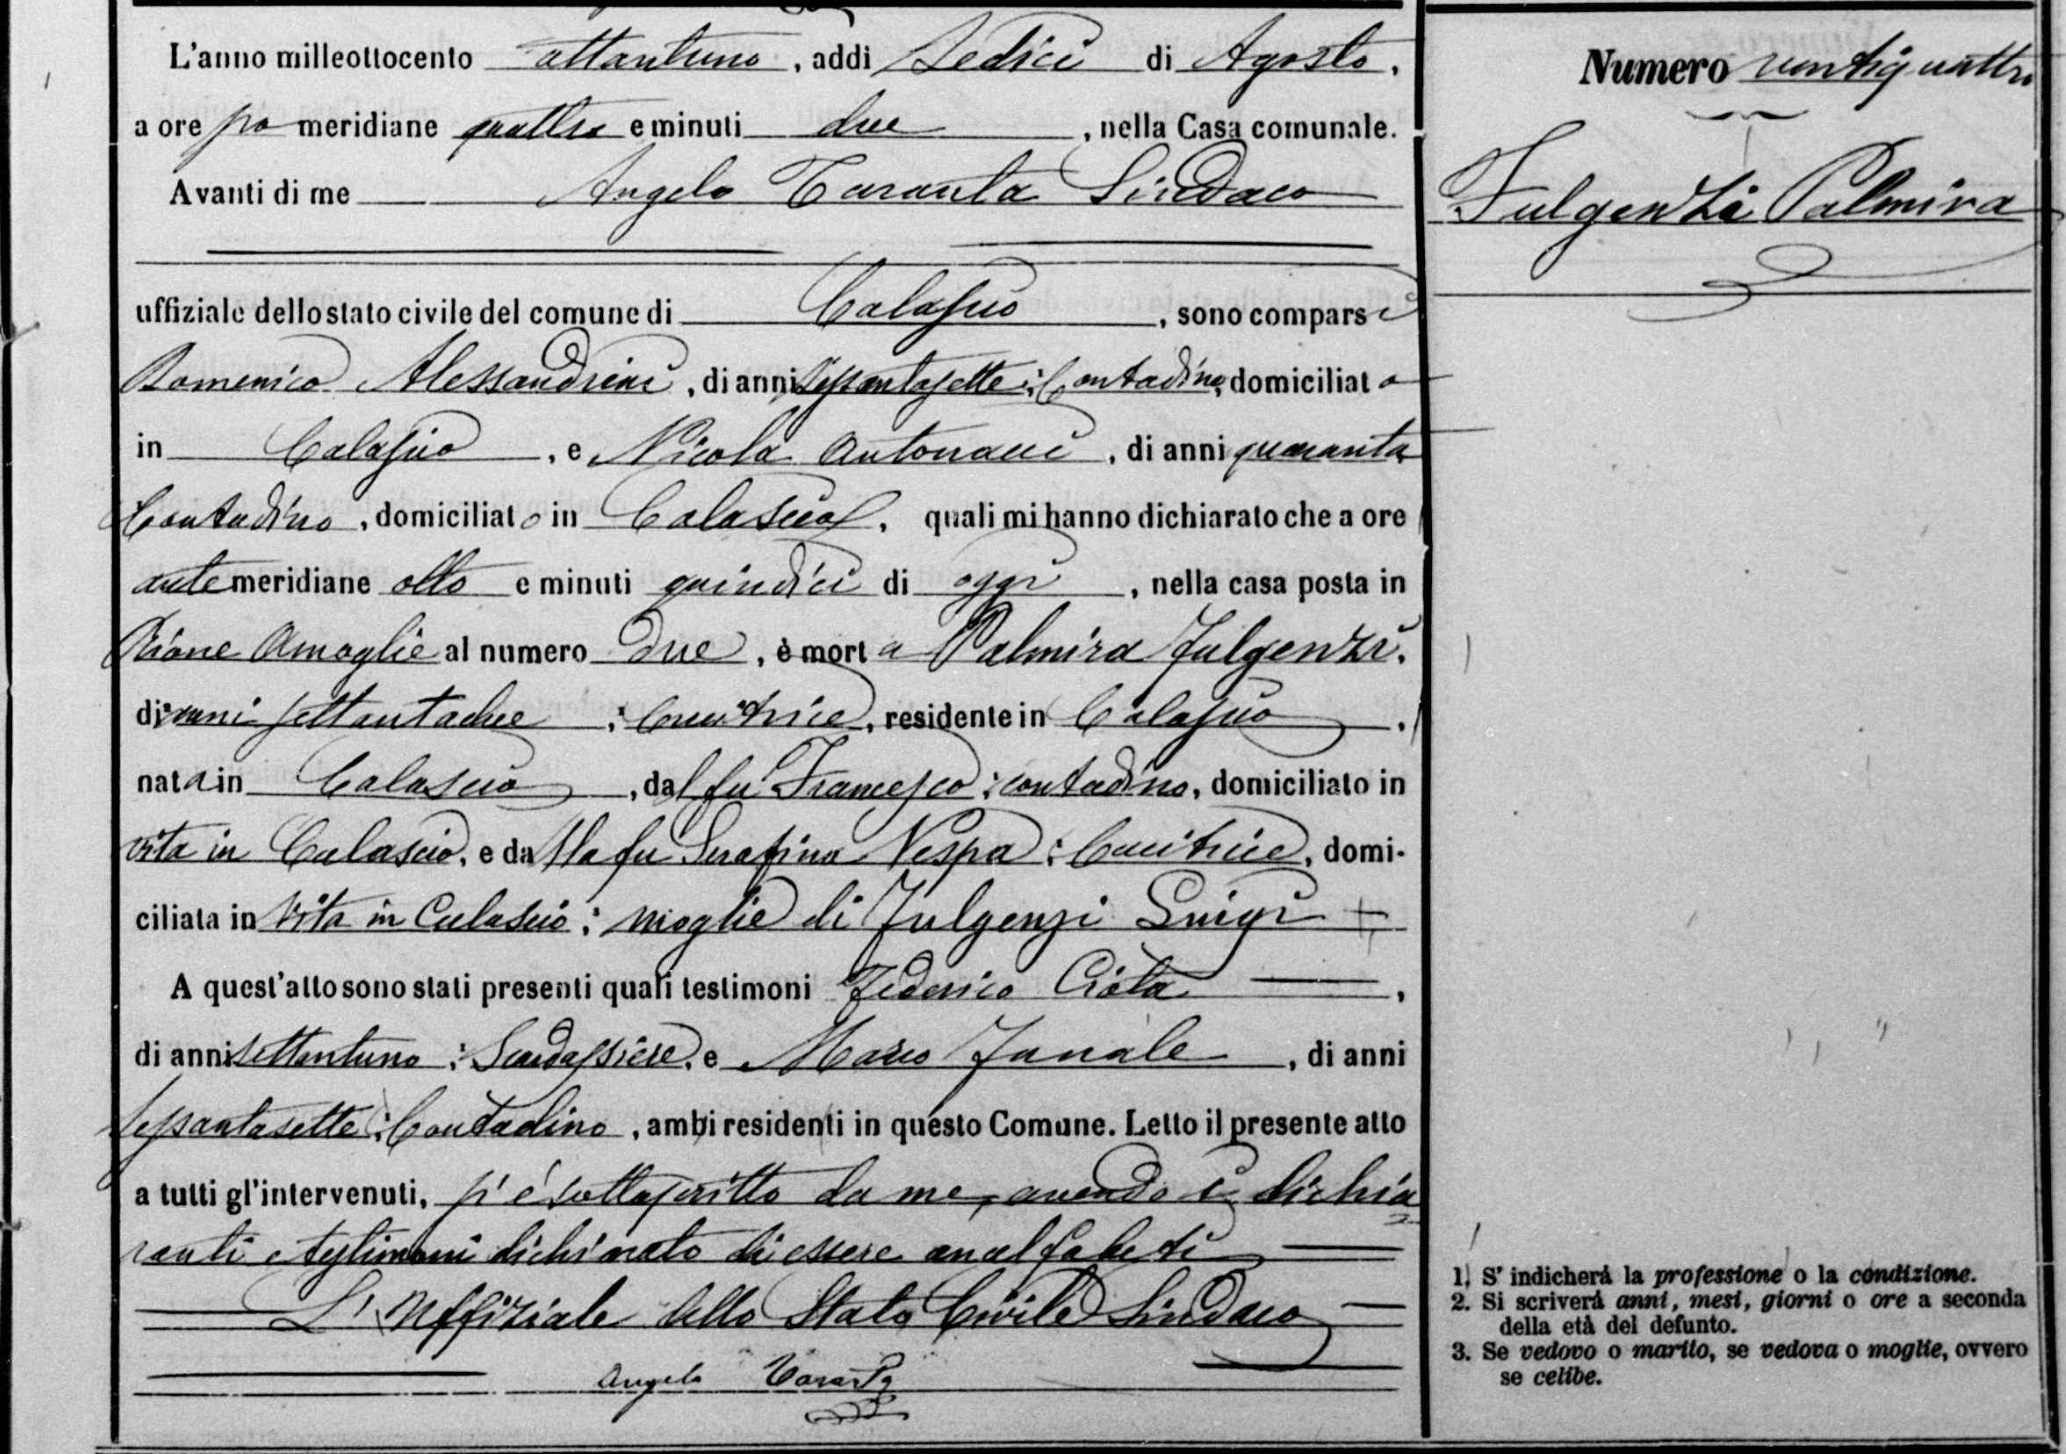 L'anno milleottocento attantuno, addi Sedici di Agosto,
a ore po meridiane quattro e minuti due, nella Casa comunale.
Avanti di me Angelo Taranta Sindaco
uffiziale dello stato civile del comune di Calascio, sono comparsi
Domenico Alessandrini, di anni sessantasette; Contadino, domiciliato
in Calascio, e Nicola Antonacci, di anni quaranta
Contadino, domiciliato in Calascio, quali mi hanno dichiarato che a ore
ante meridiane otto e minuti quindici di oggi, nella casa posta in
Rione Amoglie al numero due, è morta Palmira Fulgenzi.
di anni settantadue; Cucitrice, residente in Calascio,
nata in Calascio, dal fu Francesco; contadino, domiciliato in
vita in Calascio, e dalla fu Serafina Vespa; Cucitrice, domi-
ciliata in vita in Calascio; moglie di Fulgenzi Luigi
A quest'atto sono stati presenti quali testimoni Federico Ciota,
di anni settantuno; Scardassiere, e Marco Fanale, di anni
sessantasette; Contadino, ambi residenti in questo Comune. Letto il presente atto
a tutti gl'intervenuti, si è sottoscritto da me, avendo i dichia
ranti e testimoni dichiarato di essere analfabeti
L'Uffiziale dello Stato Civile Sindaco
Angelo Taranta
Numero ventiquattro
Fulgenzi Palmira
1. S' indicherà la professione o la condizione.
2. Si scriverà anni, mesi, giorni o ore a seconda
della età del defunto.
3. Se vedovo o marito, se vedova o moglie, ovvero
se celibe.